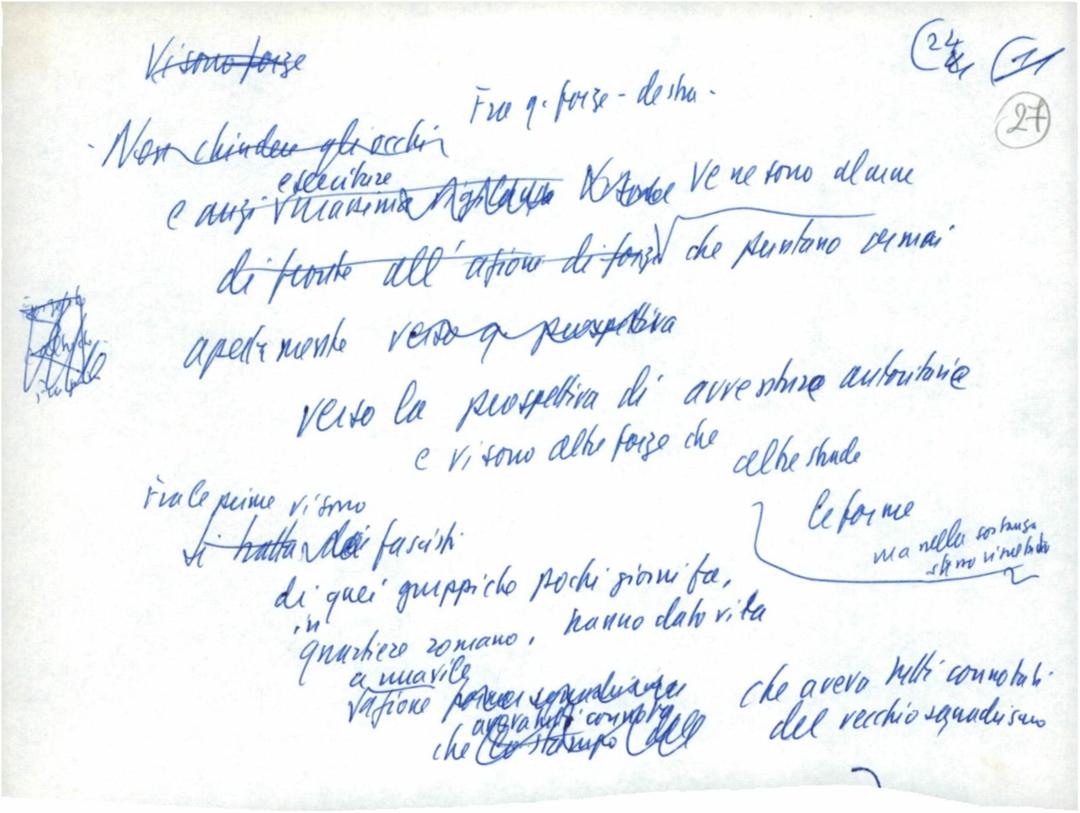 Vi sono forze
(24 (11
27
Fra q. forze - destra -
Non chiudere gli occhi
esercitare
e anzi massima vigilanza ve ne sono alcune
di fronte all'azione di forza che puntano ormai
apertamente verso q prospettiva
verso la prospettiva di avventure autoritarie
e vi sono altre forze che altre strade
le forme
ma nella sostanza
stesso risultato
Fra le prime vi sono
si tratta dei fascisti
di quei gruppi che pochi giorni fa,
in
quartiere romano, hanno dato vita
a una vile
azione squadrismo che aveva tutti connotati
aveva tutti connotati
che lo stampo del vecchio squadrismo